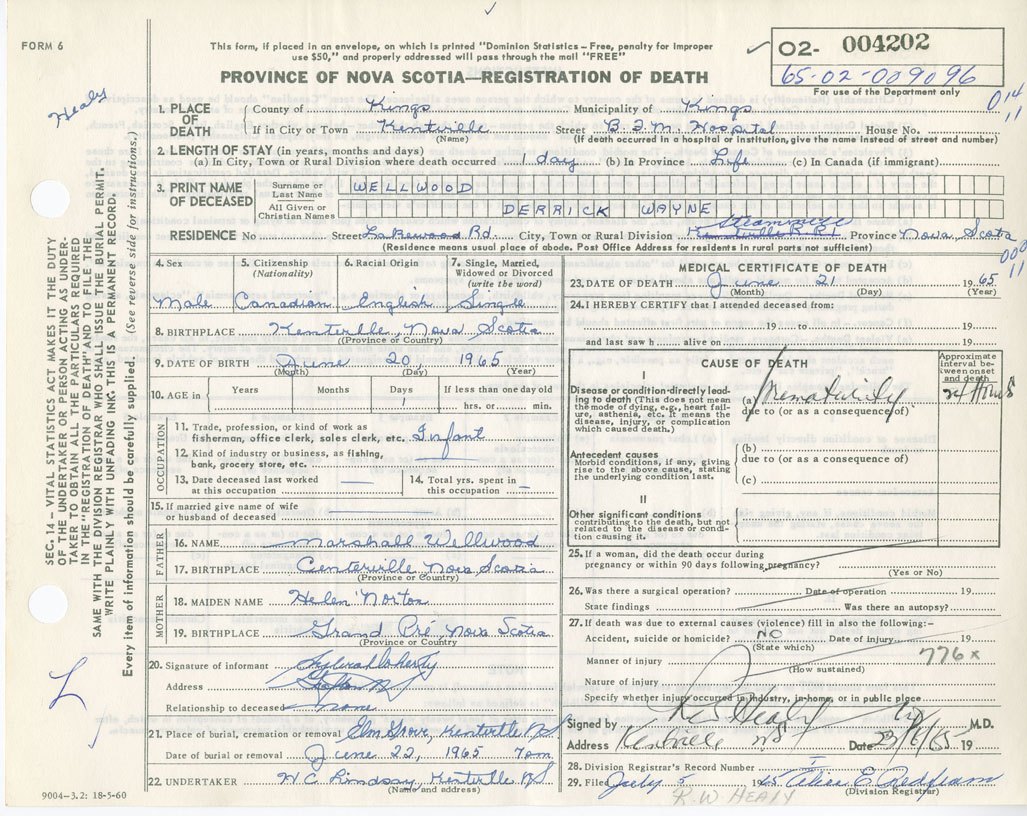 FORM 6
This form, if placed in an envelope, on which is printed "Dominion Statistics—Free, penalty for improper
use $50," and properly addressed will pass through the mail "FREE"
PROVINCE OF NOVA SCOTIA—REGISTRATION OF DEATH
02- 004202
65-02-009096
For use of the Department only
014
11
Healy
SEC. 14 – VITAL STATISTICS ACT MAKES IT THE DUTY
OF THE UNDERTAKER OR PERSON ACTING AS UNDER-
TAKER TO OBTAIN ALL THE PARTICULARS REQUIRED
IN THE "REGISTRATION OF DEATH" AND TO FILE THE
SAME WITH THE DIVISION REGISTRAR WHO SHALL ISSUE THE BURIAL PERMIT.
WRITE PLAINLY WITH UNFADING INK. THIS IS A PERMANENT RECORD.
Every item of information should be carefully supplied. (See reverse side for instructions.)
1. PLACE OF DEATH
County of Kings Municipality of Kings
If in City or Town Kentville Street B.F.M. Hospital House No.
(Name) (If death occurred in a hospital or institution, give the name instead of street and number)
2. LENGTH OF STAY (in years, months and days)
(a) In City, Town or Rural Division where death occurred 1 day (b) In Province Life (c) In Canada (if immigrant)
3. PRINT NAME OF DECEASED
Surname or Last Name WELLWOOD
All Given or Christian Names DERRICK WAYNE
RESIDENCE No Street Lakewood Rd City, Town or Rural Division Kentville R.R.1 Steam Mill Province Nova Scotia
(Residence means usual place of abode. Post Office Address for residents in rural parts not sufficient)
000
11
4. Sex 5. Citizenship (Nationality) 6. Racial Origin 7. Single, Married, Widowed or Divorced (write the word)
Male Canadian English Single
8. BIRTHPLACE Kentville, Nova Scotia
(Province or Country)
9. DATE OF BIRTH June 20, 1965
(Month) (Day) (Year)
10. AGE in Years Months Days If less than one day old
1 hrs. or min.
OCCUPATION
11. Trade, profession, or kind of work as
fisherman, office clerk, sales clerk, etc. Infant
12. Kind of industry or business, as fishing,
bank, grocery store, etc.
13. Date deceased last worked
at this occupation
14. Total yrs. spent in
this occupation
15. If married give name of wife
or husband of deceased
FATHER
16. NAME Marshall Wellwood
17. BIRTHPLACE Centerville Nova Scotia
(Province or Country)
MOTHER
18. MAIDEN NAME Helen Norton
19. BIRTHPLACE Grand Pré, Nova Scotia
(Province or Country)
20. Signature of informant
Address
Relationship to deceased none
21. Place of burial, cremation or removal Elm Grove, Kentville NS
Date of burial or removal June 22, 1965 7pm
22. UNDERTAKER W.C. Lindsay, Kentville NS
(Name and address)
9004-3.2: 18-5-60
MEDICAL CERTIFICATE OF DEATH
23. DATE OF DEATH June 21 19 65
(Month) (Day) (Year)
24. I HEREBY CERTIFY that I attended deceased from:
19 to 19
and last saw h alive on 19
CAUSE OF DEATH
Approximate interval between onset and death
I
Disease or condition directly lead-
ing to death (This does not mean
the mode of dying, e.g., heart fail-
ure, asthenia, etc. It means the
disease, injury, or complication
which caused death.)
(a) Prematurity 24 Hours
due to (or as a consequence of)
Antecedent causes
Morbid conditions, if any, giving
rise to the above cause, stating
the underlying condition last.
(b)
due to (or as a consequence of)
(c)
II
Other significant conditions
contributing to the death, but not
related to the disease or condi-
tion causing it.
25. If a woman, did the death occur during
pregnancy or within 90 days following pregnancy?
(Yes or No)
26. Was there a surgical operation? Date of operation 19
State findings Was there an autopsy?
27. If death was due to external causes (violence) fill in also the following:-
Accident, suicide or homicide? NO Date of injury 19
(State which)
776x
Manner of injury
(How sustained)
Nature of injury
Specify whether injury occurred in industry, in home, or in public place
Signed by R W Healy M.D.
Address Kentville NS Date 23/6/65 19
28. Division Registrar's Record Number I
29. Filed July 5 1965
(Division Registrar)
R.W. HEALY